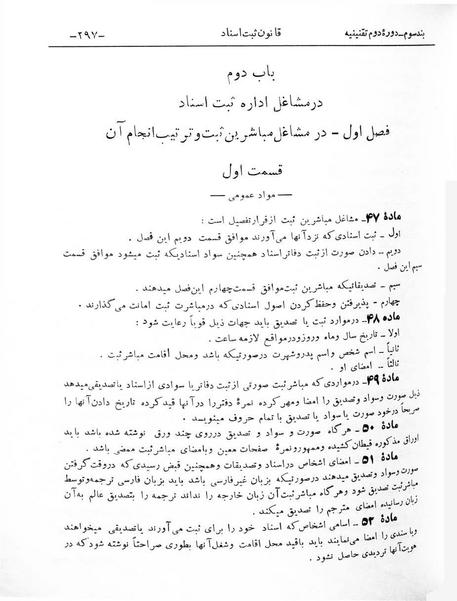 بند سوم ـ دورهٔ دوم تقنینیه
قانون ثبت اسناد
ـ ۲۹۷ ـ
باب دوم
در مشاغل اداره ثبت اسناد
فصل اول - در مشاغل مباشرین ثبت و ترتیب انجام آن
قسمت اول
— مواد عمومی —
مادهٔ ۴۷ـ مشاغل مباشرین ثبت از قرار تفصیل است :
اول ـ ثبت اسنادی که نزد آنها می‌آورند موافق قسمت دویم این فصل .
دویم ـ دادن صورت از ثبت دفاتر اسناد همچنین سواد اسنادیکه ثبت میشود موافق قسمت
سیم این فصل .
سیم ـ تصدیقاتیکه مباشرین ثبت موافق قسمت چهارم این فصل میدهند .
چهارم - پذیرفتن و حفظ کردن اصول اسنادی که در مباشرت ثبت امانت می‌گذارند .
ماده ۴۸ـ در موارد ثبت یا تصدیق باید جهات ذیل قویاً رعایت شود :
اولا ـ تاریخ سال و ماه و روز و در مواقع لازمه ساعت .
ثانیاً ـ اسم شخص و اسم پدر و شهرت در صورتیکه باشد و محل اقامت مباشر ثبت .
ثالثاً ـ امضای او .
مادهٔ ۴۹ـ در مواردی که مباشر ثبت صورتی از ثبت دفاتر یا سوادی از اسناد یا تصدیقی میدهد
ذیل صورت و سواد و تصدیق را امضا و مهر کرده نمرهٔ دفتر را در آنها قید کرده تاریخ دادن آنها را
صریحاً در خود صورت یا سواد یا تصدیق با تمام حروف مینویسد .
مادهٔ ۵۰ ـ هر گاه صورت و سواد و تصدیق در روی چند ورق نوشته شده باشد باید
اوراق مذکوره قیطان کشیده و ممهور و نمرهٔ صفحات معین و بامضای مباشر ثبت ممضی باشد .
مادهٔ ۵۱ ـ امضای اشخاص در اسناد و تصدیقات و همچنین قبض رسیدی که در وقت گرفتن
صورت و سواد و تصدیق میدهند در صورتیکه بزبان غیر فارسی باشد باید بزبان فارسی ترجمه و توسط
مباشر ثبت تصدیق شود و هر گاه مباشر ثبت آن زبان خارجه را نداند ترجمه را بتصدیق عالم به آن
زبان رسانیده امضای مترجم را تصدیق میکند .
مادهٔ ۵۲ ـ اسامی اشخاص که اسناد خود را برای ثبت می‌آورند یا تصدیقی میخواهند
و یا سندی را امضا می‌نمایند باید باقید محل اقامت و شغل آنها بطوری صراحتاً نوشته شود که در
هویت آنها تردیدی حاصل نشود .